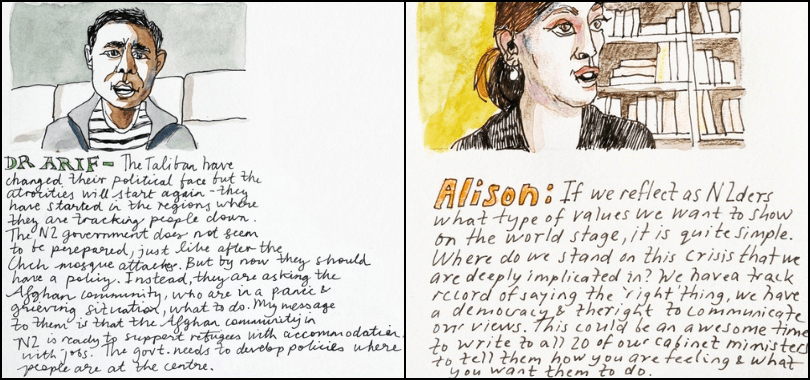 DR ARIF - The Taliban have
changed their political face but the
atrocities will start again - they
have started in the regions where
they are tracking people down.
The NZ government does not seem
to be perepared, just like after the
Chch mosque attacks. But by now they should
have a policy. Instead, they are asking the
Afghan community, who are in a panic &
grieving situation, what to do. My message
to them is that the Afghan community in
NZ is ready to support refugees with accommodation.
with jobs. The govt. needs to develop policies where
people are at the centre.
Alison: If we reflect as NZders
what type of values we want to show
on the world stage, it is quite simple.
Where do we stand on this crisis that we
are deeply implicated in? We have a track
record of saying the 'right' thing, we have
a democracy & the right to communicate
our views. This could be an awesome time
to write to all 20 of our cabinet ministers
to tell them how you are feeling & what
you want them to do.